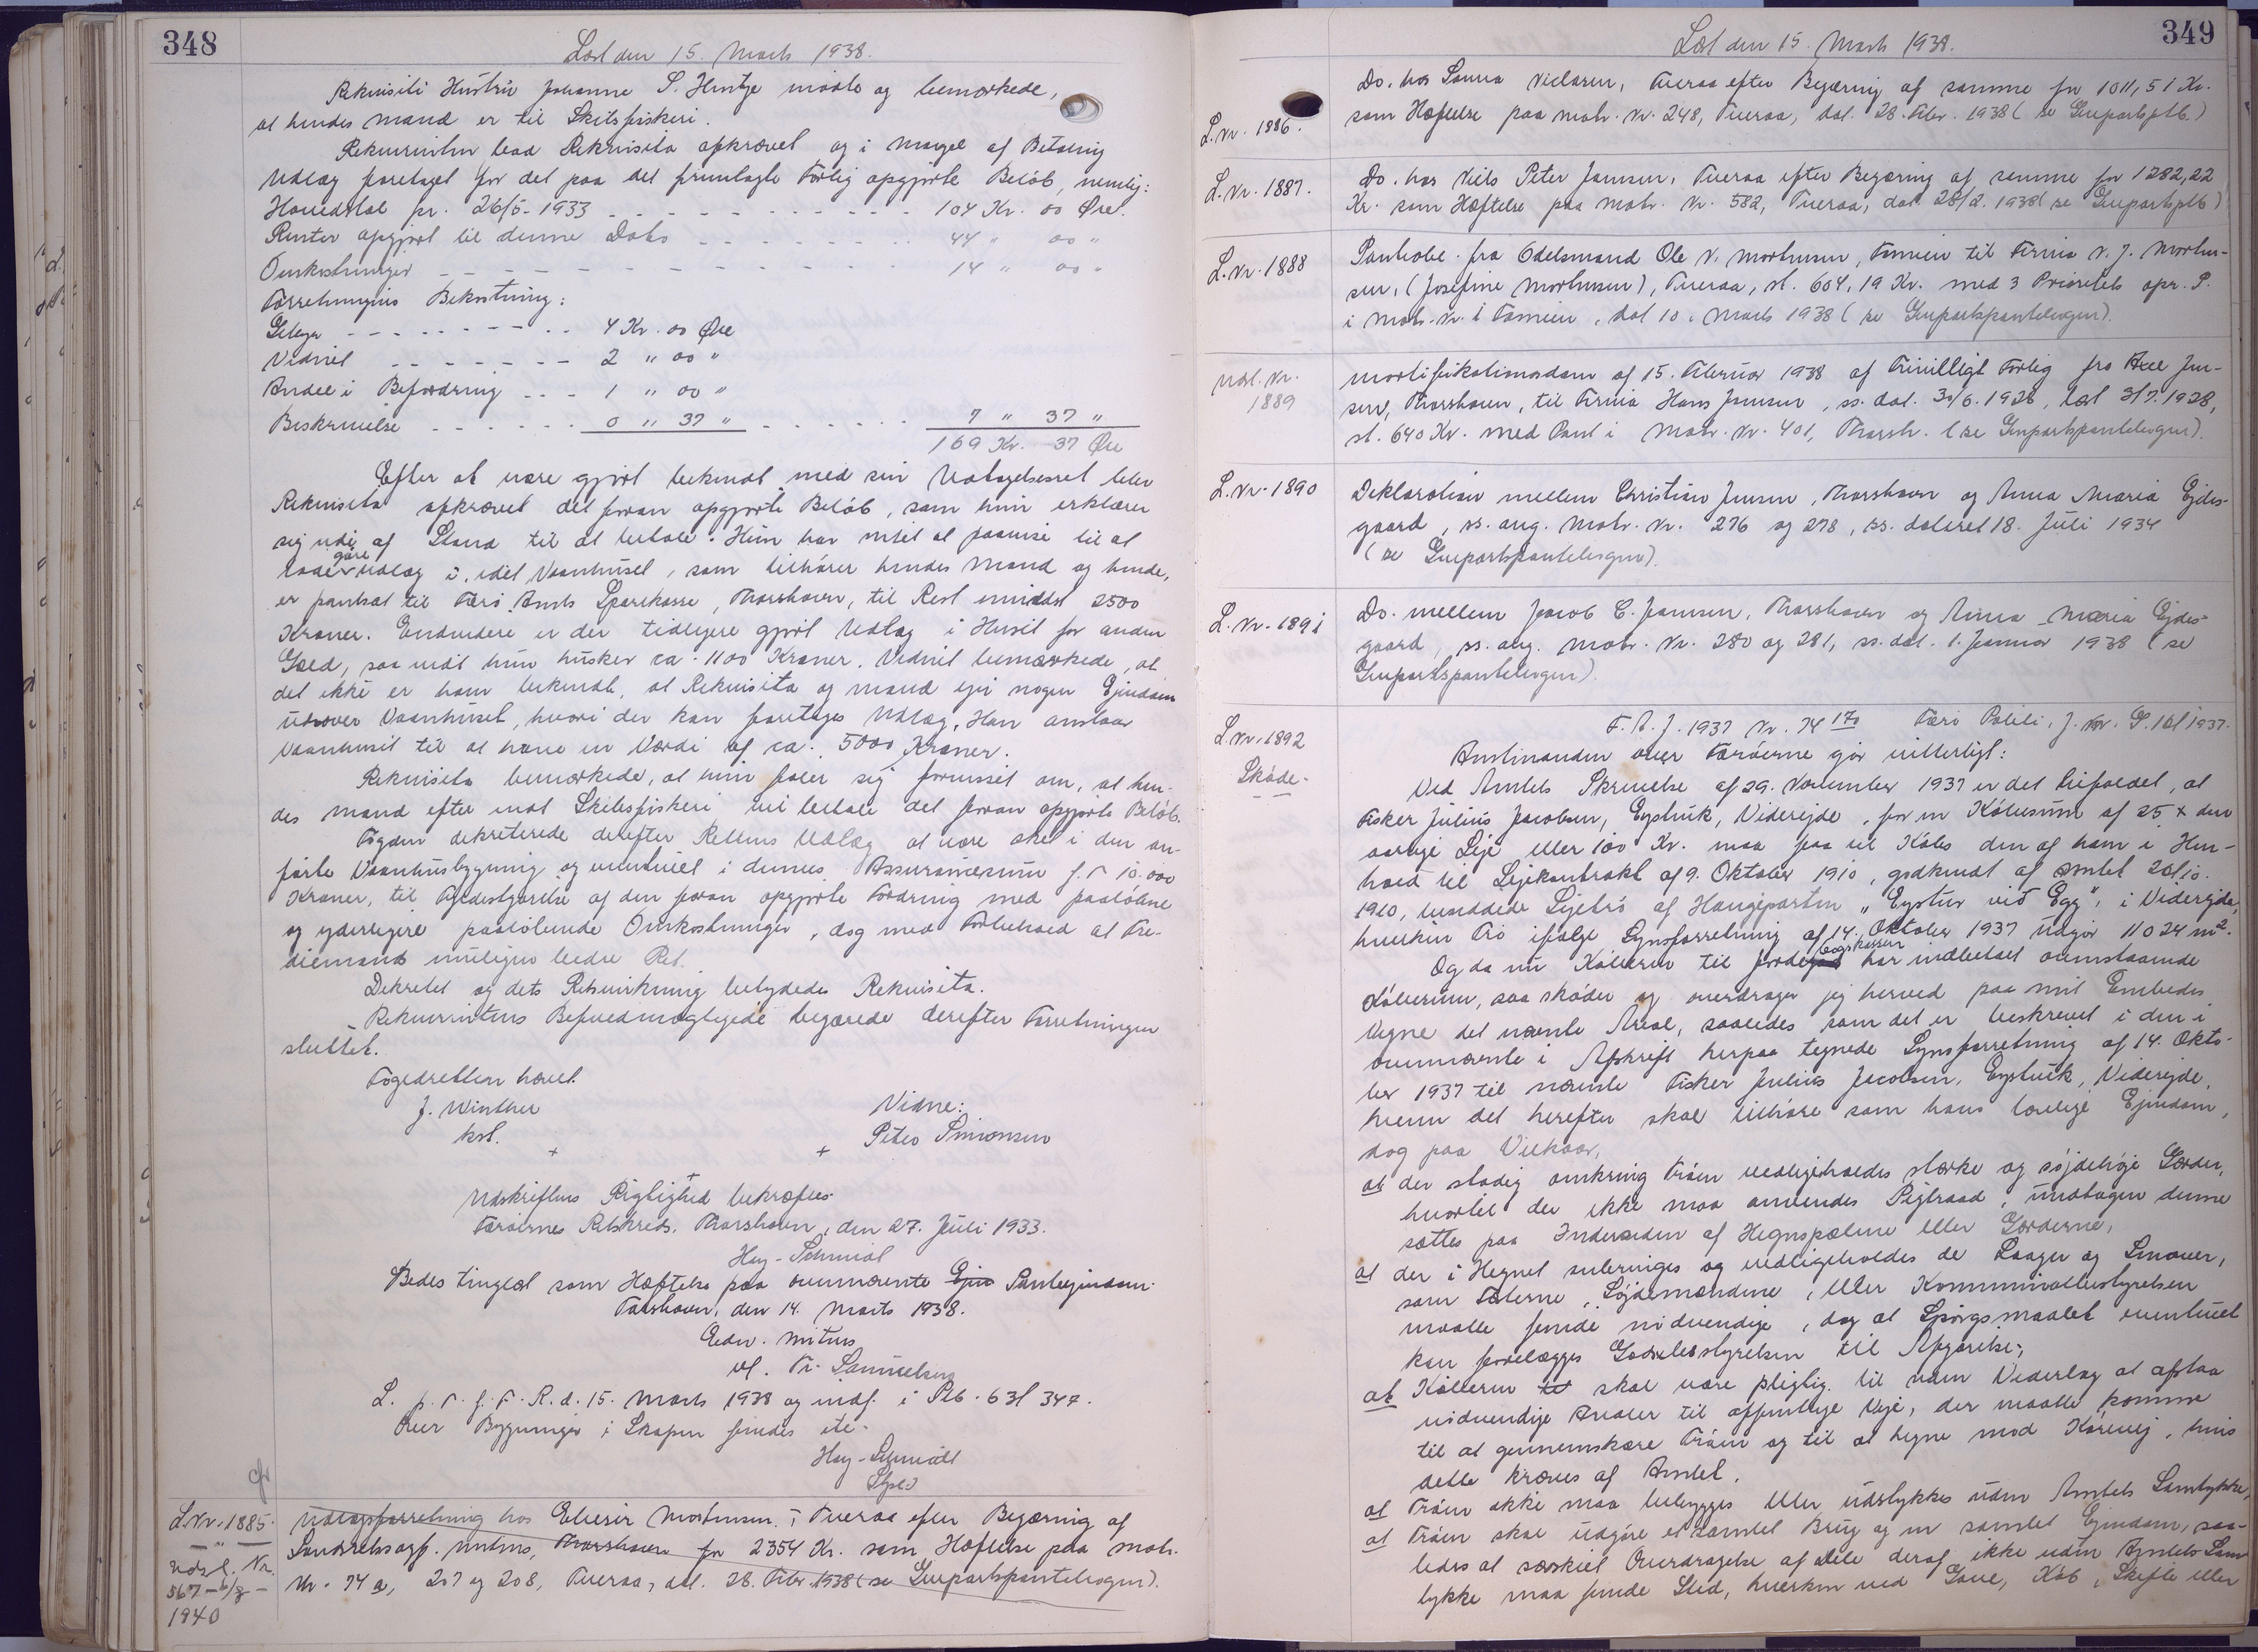 348
Læst den 15. Marts 1938.
Rekvisiti Hustru Johanne S. Hentze mødte og bemærkede,
at hendes Mand er til Skibsfiskeri.
Rekvirenten bad Rekvisita afkrævet og i Mangel af Betaling
Udlæg foretaget for det paa det fremlagte Forlig opgjorte Beløb, nemlig:
Hovedstol pr. 26/5-1933 - - - - - - - - - - - - 104 Kr. 00 Øre.
Renter opgjort til denne Dato - - - - - - - - 44 " 00 "
Omkostninger - - - - - - - - - - - - - - - 14 " 00 "
Forretningens Bekostning:
Gebyr - - - - - - - - - - 4 Kr. 00 Øre
Vidnet - - - - - - - - 2 " 00 "
Andel i Befordring - - - 1 " 00 "
Beskrivelse - - - - - - 0 " 37 " - - - - - - - 7 " 37 "
169 Kr. 37 Øre
Efter at være gjort bekendt med sin Udtagelsesret blev
Rekvisita afkrævet det foran opgjorte Beløb, som hun erklærer
sig ude af Stand til at betale. Hun har intet at paavise til at
lade gøre Udlæg i, idet Vaanhuset, som tilhører hendes Mand og hende,
er pantsat til Færø Amts Sparekasse, Thorshavn, til Rest omindst 2500
Kroner. Endvidere er der tidligere gjort Udlæg i Huset for anden
Gæld, saa vidt hun husker ca. 1100 Kroner. Vidnet bemærkede, at
det ikke er ham bekendt, at Rekvisita og Mand ejer nogen Ejendom
udover Vaanhuset, hvori der kan foretages Udlæg. Han anslaar
Vaanhuset til at have en Værdi af ca. 5000 Kroner.
Rekvisita bemærkede, at hun føler sig forvisset om, at hen-
des Mand efter endt Skibsfiskeri vil betale det foran opgjorte Beløb.
Fogden dekreterede derefter Rettens Udlæg at være sket i den an-
førte Vaanhusbygning og eventuelt i dennes Assurancesum f. T. 10.000
Kroner, til Fyldestgørelse af den foran opgjorte Fordring med paaløbne
og yderligere paaløbende Omkostninger, dog med Forbehold af Tre-
diemands muligen bedre Ret.
Dekretet og dets Retsvirkning betydedes Rekvisita.
Rekvirentens Befuldmægtigede begærede derefter Forretningen
sluttet.
Fogedretten hævet.
J. Winther
kst.
Vidne:
Peter Simonsen
Udskriftens Rigtighed bekræftes.
Færøernes Retskreds, Thorshavn, den 27. Juli 1933.
Hey-Schmidt
Bedes tinglæst som Hæftelse paa ovennævnte Ejen Panteejendom.
Thorshavn, den 14. Marts 1938.
Edw. Mitens
v/. Fr. Samuelsen
L. p. T. f. F. R. d. 15. Marts 1938 og indf. i Ptb. 63 f 347.
Over Bygninger i Skopun findes ikke.
Hey-Schmidt
L.Nr. 1885.
Udsl. Nr.
567 - 6/8 -
1940
Udlægsforretning hos Elieser Mortensen i Tveraa efter Begæring af
Landsretssagf. Mitens, Thorshavn for 2354 Kr. som Hæftelse paa Matr.
Nr. 74 a, 207 og 208, Tveraa, dat. 28. Febr. 1938 (se Genpartspantebogen).
349
Læst den 15. Marts 1938.
L.Nr. 1886.
Do. hos Sanna Nielsen, Tveraa efter Begæring af samme for 1011,51 Kr.
som Hæftelse paa Matr. Nr. 248, Tveraa, dat. 28. Febr. 1938 (se Genpartsptb.)
L.Nr. 1887.
Do. hos Niels Peter Jensen, Tveraa efter Begæring af samme for 1282,22
Kr. som Hæftelse paa Matr. Nr. 582, Tveraa, dat. 28/2. 1938 (se Genpartsptb)
L.Nr. 1888
Panteobl. fra Odelsmand Ole N. Mortensen, Famien til Firma N. J. Morten-
sen, (Josefine Mortensen), Tveraa, st. 604,19 Kr. med 3 Prioritets opr. P.
i Matr. Nr. 1 Famien, dat 10. Marts 1938 (se Genpartspantebogen).
Udsl. Nr.
1889
Mortifikationsdom af 15. Februar 1938 af Frivilligt Forlig fra Axel Jen-
sen, Thorshavn, til Firma Hans Jensen, ss. dat. 30/6. 1928, læst 3/7. 1928,
st. 640 Kr. med Pant i Matr. Nr. 401, Thorsh. (se Genpartspantebogen).
L.Nr. 1890
Deklaration mellem Christian Jensen, Thorshavn og Anna Maria Ejdes-
gaard, ss. ang. Matr. Nr. 276 og 278, ss. dateret 18. Juli 1934
(se Genpartspantebogen).
L.Nr. 1891
Do. mellem Jacob C. Jensen, Thorshavn og Anna Maria Ejdes-
gaard, ss. ang. Matr. Nr. 280 og 281, ss. dat. 1. Januar 1938 (se
Genpartspantebogen).
L.Nr. 1892
Skøde.
F. A. J. 1937 Nr. 74 170 Færø Politi, J. Nr. P. 161 1937.
Amtmanden over Færøerne gør vitterligt:
Ved Amtets Skrivelse af 29. November 1937 er det bifaldet, at
Fisker Julius Jacobsen, Eystvik, Viderejde, for en Købesum af 25 x den
aarlige Leje eller 100 Kr. maa faa til Købs den af ham i Hen-
hold til Lejekontrakt af 9. Oktober 1910, godkendt af Amtet 20/10.
1910, benyttede Lejetrø af Haugeparten „Eystur við Egg“, i Viderejde,
hvilken Trø ifølge Synsforretning af 14. Oktober 1937 udgør 11024 m².
Og da nu Køberen til Jordebogskassen har indbetalt ovenstaaende
Købesum, saa skøder og overdrager jeg herved paa mit Embedes
Vegne det nævnte Areal, saaledes som det er beskrevet i den i
ovennævnte i Afskrift herpaa tegnede Synsforretning af 14. Okto-
ber 1937 til nævnte Fisker Julius Jacobsen, Eystvik, Viderejde,
hvem det herefter skal tilhøre som hans lovlige Ejendom,
dog paa Vilkaar,
at der stadig omkring Trøen vedligeholdes stærke og søjdehøje Gærder,
hvortil der ikke maa anvendes Pigtraad, undtagen denne
sættes paa Indersiden af Hegnspælene eller Gærderne,
at der i Hegnet anbringes og vedligeholdes de Laager og Smøuer,
som Ejerne, Søjdemændene, eller Kommunalbestyrelsen
maatte finde nødvendige, dog at Spørgsmaalet eventuelt
kan forelægges Godsbestyrelsen til Afgørelse;
at Køberen til skal være pligtig til uden Vederlag at afstaa
nødvendige Arealer til offentlige Veje, der maatte komme
til at gennemskære Trøen og til at hegne mod Kørevej, hvis
dette kræves af Amtet.
at Trøen ikke maa bebygges eller udstykkes uden Amtets Samtykke,
at Trøen skal udgøre et samlet Brug og en samlet Ejendom, saa-
ledes at særskilt Overdragelse af Dele deraf ikke uden Amtets Sam-
tykke maa finde Sted, hverken ved Gave, Køb, Skifte eller